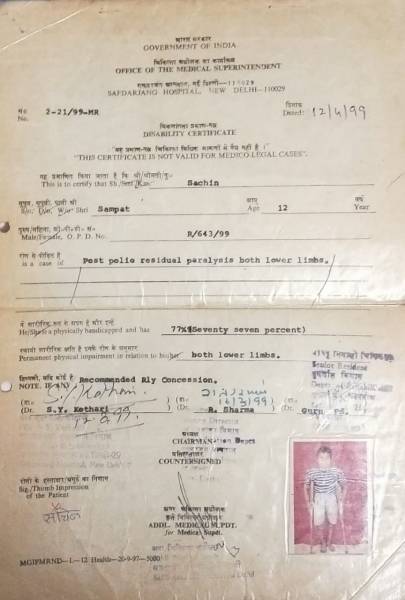 भारत सरकार
GOVERNMENT OF INDIA
चिकित्सा अधीक्षक का कार्यालय
OFFICE OF THE MEDICAL SUPERINTENDENT
सफदरजंग अस्पताल, नई दिल्ली—110029
SAFDARJANG HOSPITAL, NEW DELHI—110029
सं० 2-21/99-MR दिनांक
No. Dated: 12/4/99
विकलांगता प्रमाण-पत्र
DISABILITY CERTIFICATE
"यह प्रमाण-पत्र चिकित्सा विधिक मामलों में वैध नहीं है ।"
"THIS CERTIFICATE IS NOT VALID FOR MEDICO LEGAL CASES".
यह प्रमाणित किया जाता है कि श्री/श्रीमती/कु०
This is to certify that Sh./Smt/Km. Sachin
सुपुत्र, सुपुत्री, पत्नी श्री आयु वर्ष
S/o, D/o, W/o Shri Sampat Age 12 Year
पुरुष/महिला, ओ०पी०डी० सं०
Male/Female, O. P. D. No. R/643/99
रोग से पीड़ित है
is a case of Post polio residual paralysis both lower limbs.
He/She is a physically handicapped and has 77%(Seventy seven percent)
Permanent physical impairment in relation to his/her both lower limbs.
टिप्पणी, यदि कोई है
NOTE, IF ANY Recommended Rly Concession.
Senior Resident
(Dr. S.Y. Kothari ) (Dr. R. Sharma ) (Dr. Guru
अध्यक्ष
CHAIRMAN
प्रतिहस्ताक्षर
COUNTERSIGNED
रोगी के हस्ताक्षर/अंगूठे का निशान
Sig./Thumb Impression
of the Patient
सचिन
अपर चिकित्सा अधीक्षक
कृते चिकित्सा अधीक्षक
ADDL. MEDICAL SUPDT.
for Medical Supdt.
MGIPMRND—L—12 Health—20-9-97—5000